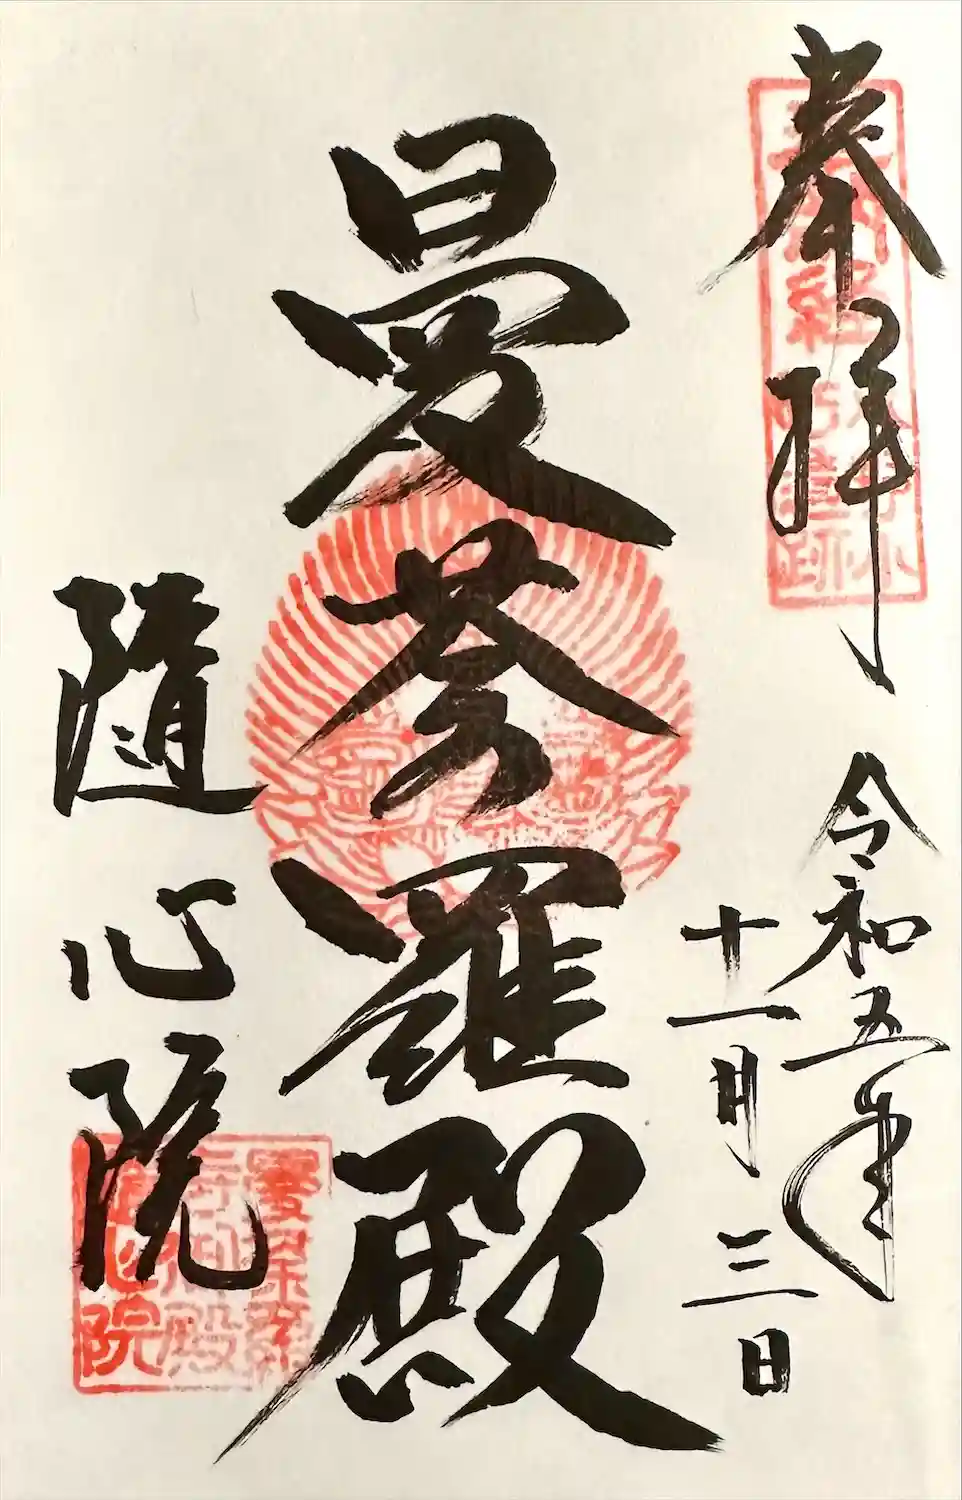 奉拝
令和五年
十一月三日
曼荼羅殿
随心院